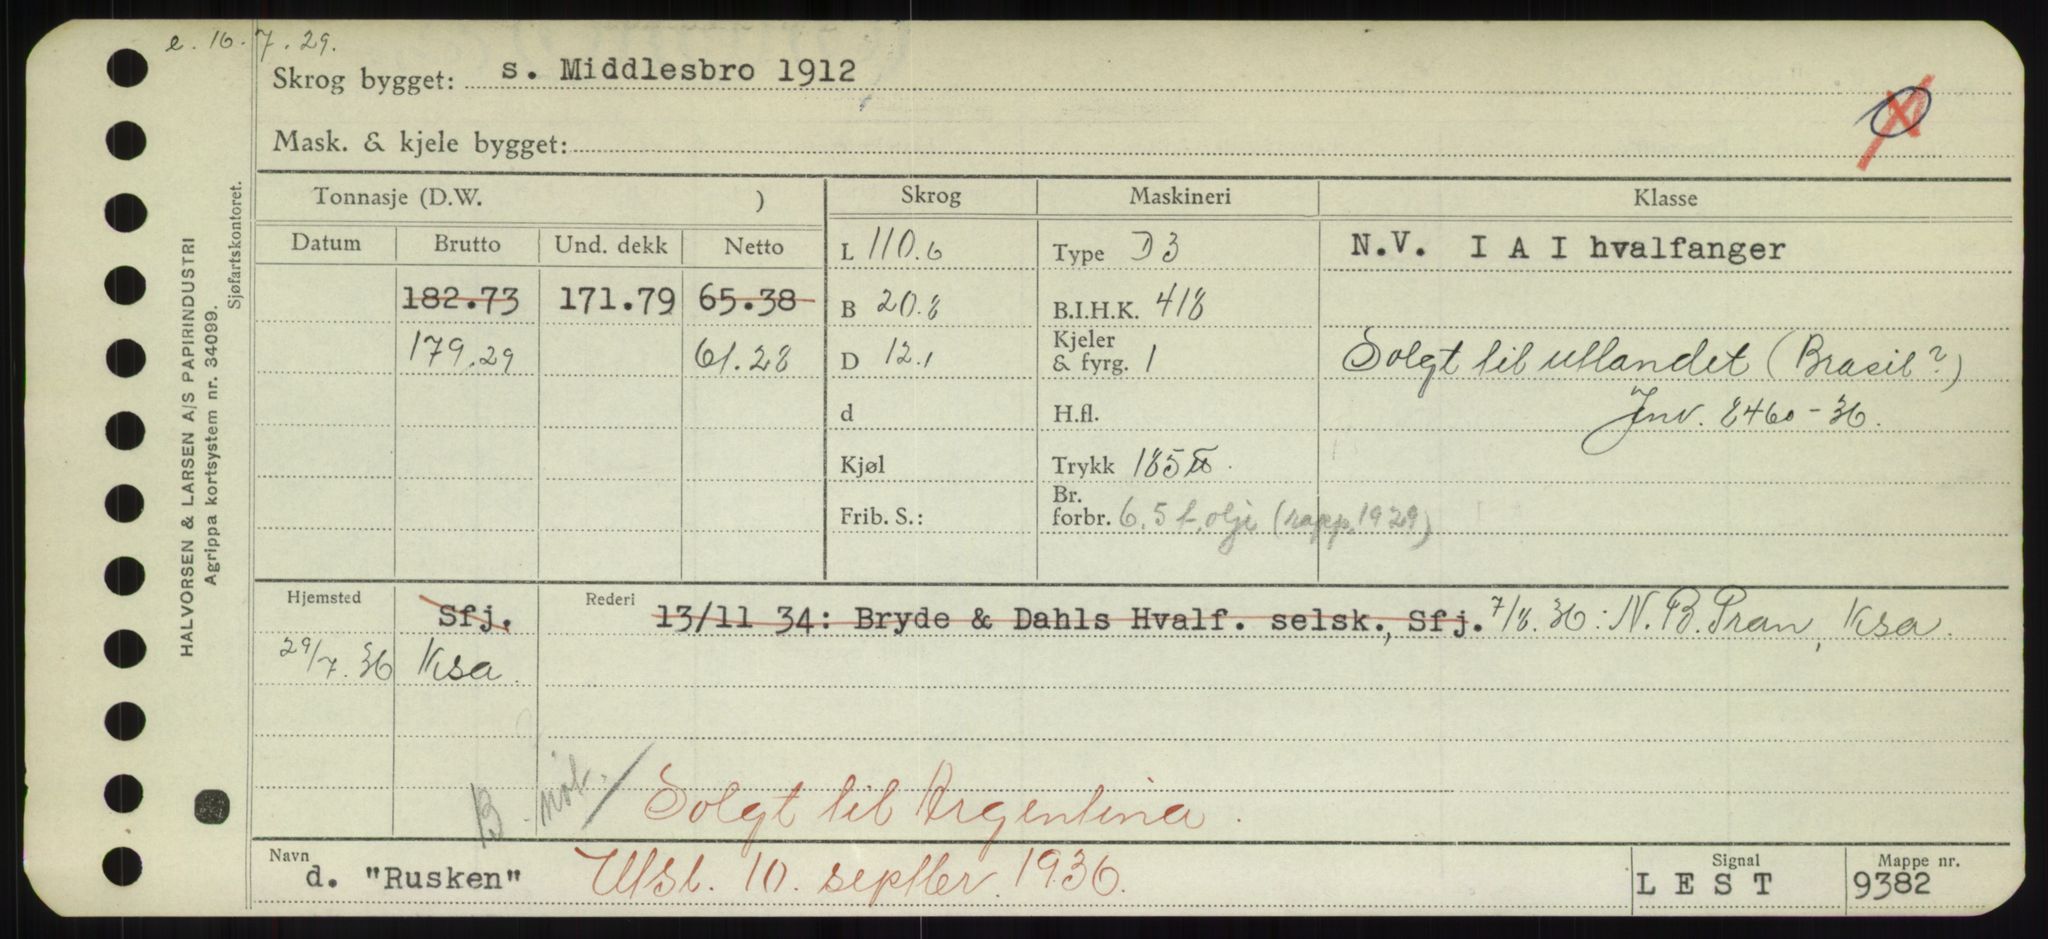 e. 16.7.29.
Skrog bygget: s. Middlesbro 1912
Mask. & kjele bygget:
HALVORSEN & LARSEN A/S PAPIRINDUSTRI
Agrippa kortsystem nr. 34099.
Sjøfartskontoret.
Tonnasje (D.W. ) Skrog Maskineri Klasse
Datum Brutto Und. dekk Netto L 110.6 Type D3 N.V. I A I hvalfanger
182.73 171.79 65.38 B 20.8 B.I.H.K. 418
179.29 61.28 D 12.1 Kjeler & fyrg. 1 Solgt til utlandet (Brasil?)
d H.fl. Jnv. 8460-36.
Kjøl Trykk 185
Frib. S.: Br. forbr. 6,5 t. olje (rapp. 1929)
Hjemsted Sfj. Rederi 13/11 34: Bryde & Dahls Hvalf. selsk., Sfj. 7/8.36: N. B. Pran, Ksa.
29/7.36 Ksa.
B. not. Solgt til Argentina.
Navn d. "Rusken" Utsl. 10. septber. 1936. Signal LEST Mappe nr. 9382